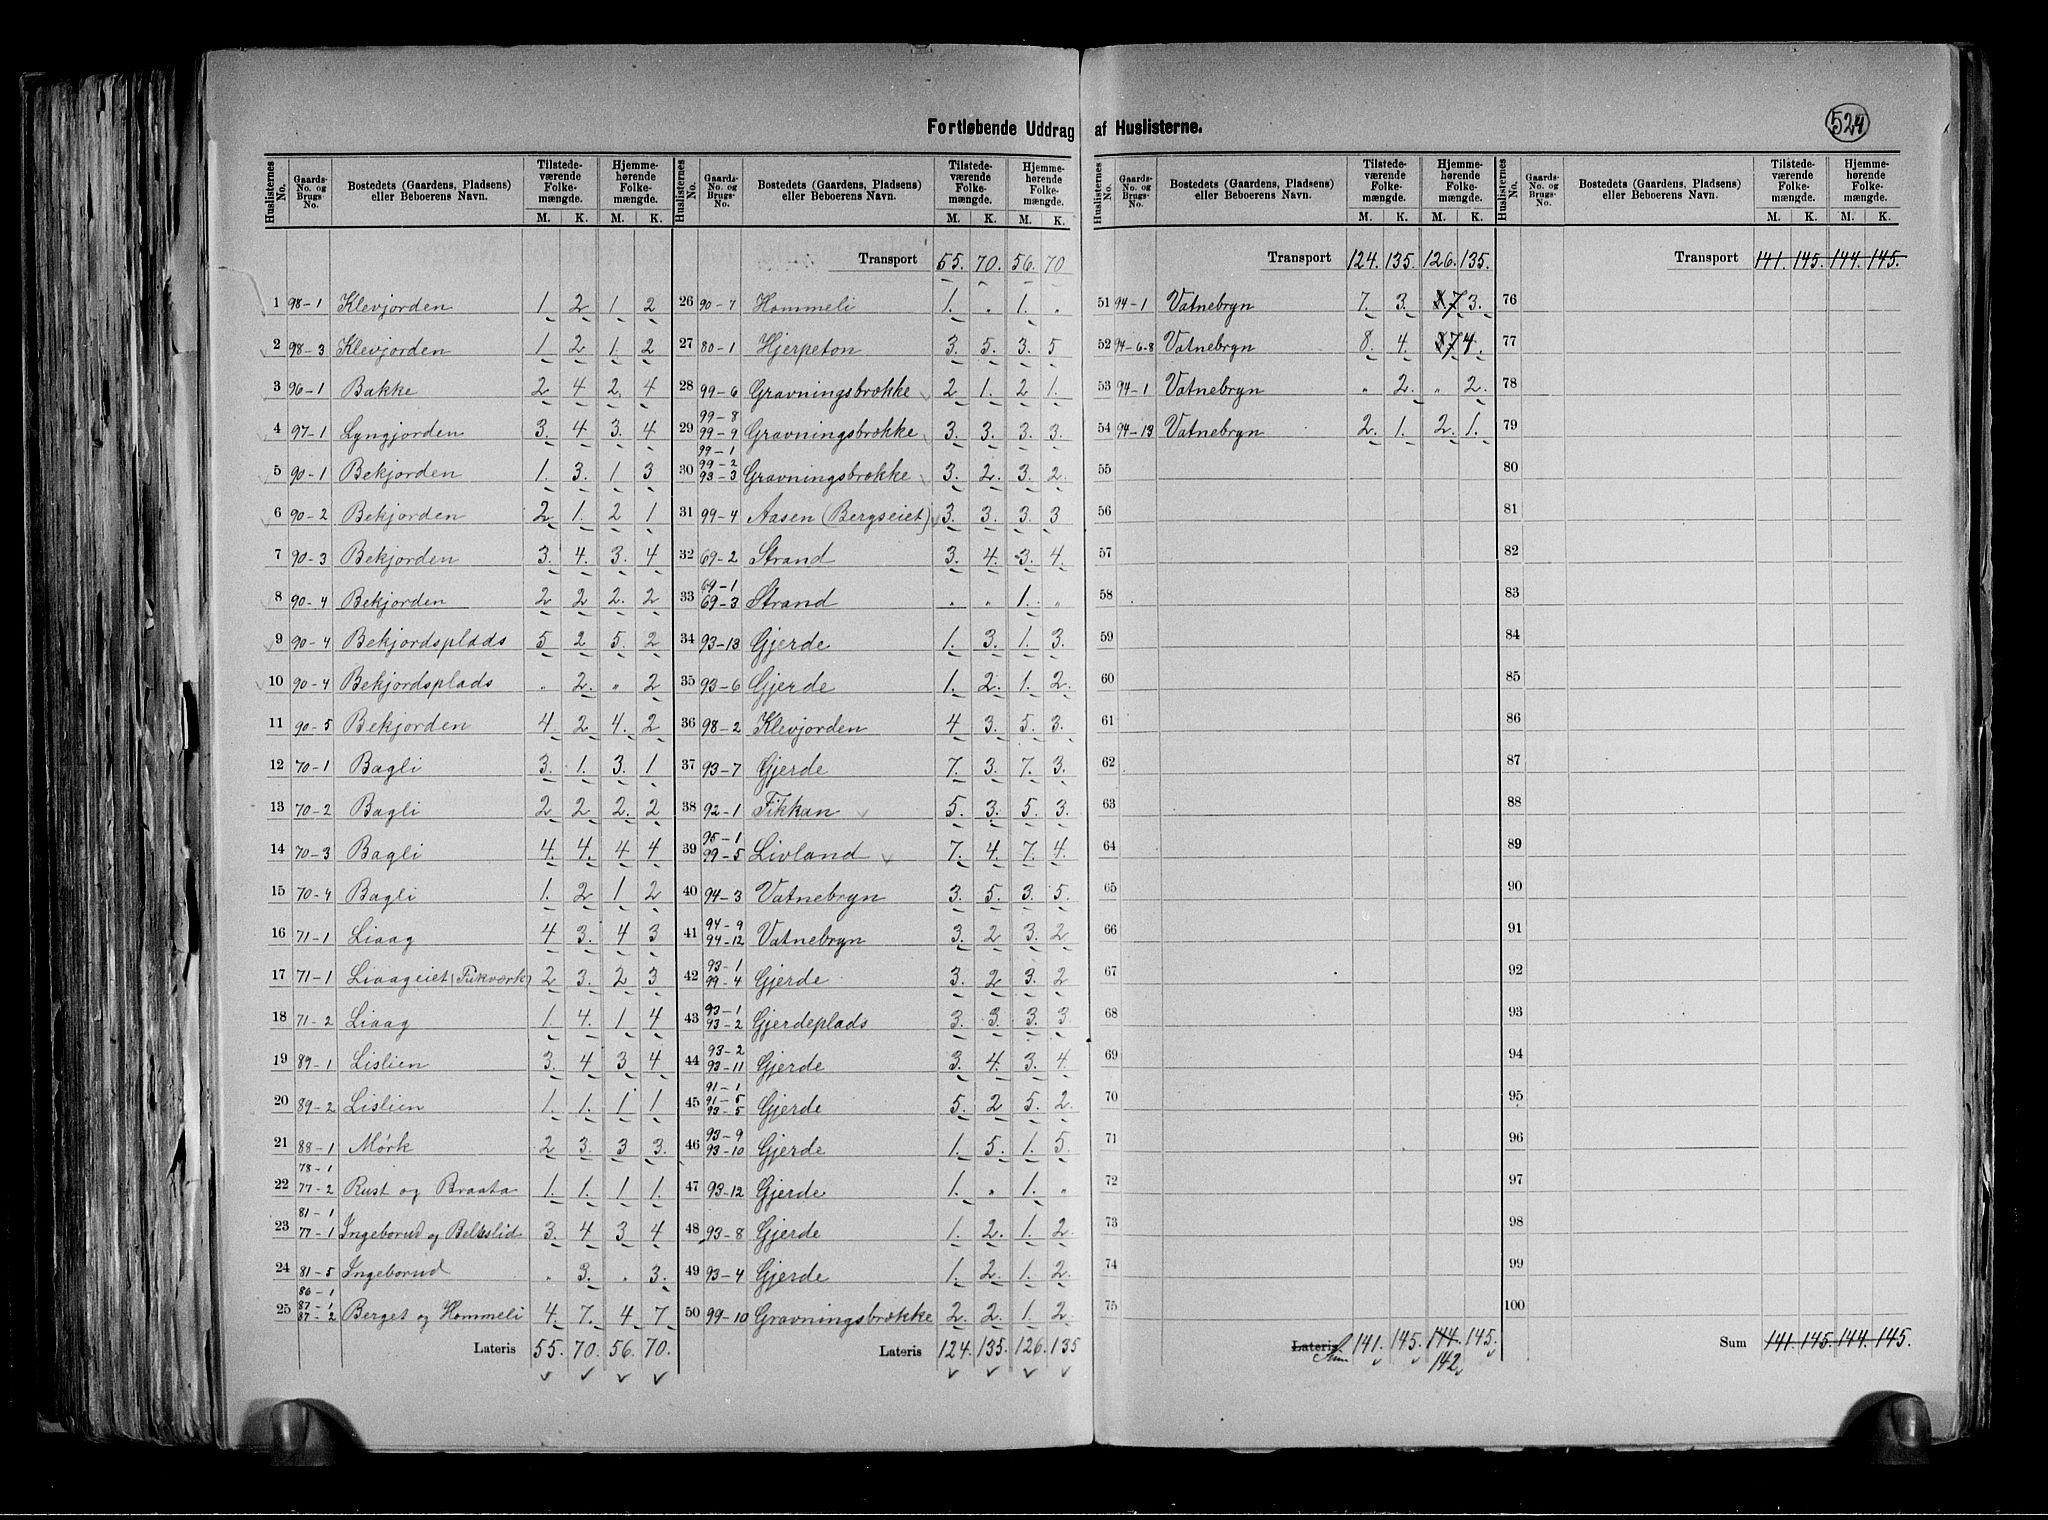 Fortløbende Uddrag af Huslisterne.
524
Huslisternes No. | Gaards-No. og Brugs-No. | Bostedets (Gaardens, Pladsens) eller Beboerens Navn. | Tilstedeværende Folkemængde. M. K. | Hjemmehørende Folkemængde. M. K.
1 98-1 Klevjorden 1. 2 1. 2
2 98-3 Klevjorden 1. 2. 1. 2
3 96-1 Bakke 2 4 2. 4
4 97-1 Lyngjorden 3. 4 3. 4
5 90-1 Bekjorden 1. 3. 1 3
6 90-2 Bekjorden 2 1. 2 1
7 90-3 Bekjorden 3. 4. 3. 4
8 90-4 Bekjorden 2 2 2. 2
9 90-4 Bekjordsplads 5 2 5. 2
10 90-4 Bekjordsplads " 2. " 2
11 90-5 Bekjorden 4 2 4. 2
12 70-1 Bagli 3. 1. 3. 1
13 70-2 Bagli 2 2 2. 2
14 70-3 Bagli 4. 4. 4 4
15 70-4 Bagli 1. 2 1 2
16 71-1 Liaag 4 3. 4 3
17 71-1 Liaageiet (Fiskværk) 2 3. 2 3
18 71-2 Liaag 1. 4. 1 4
19 89-1 Lislien 3. 4 3 4
20 89-2 Lislien 1. 1. 1 1
21 88-1 Mørk 2 3. 3 3.
22 78-1 77-2 Rust og Braata 1. 1. 1 1.
23 81-1 77-1 Ingeborud og Belkslid 3. 4 3 4
24 81-5 Ingeborud " 3. " 3.
25 86-1 87-1 87-2 Berget og Hommeli 4. 7. 4 7
Lateris 55. 70. 56. 70.
Huslisternes No. | Gaards-No. og Brugs-No. | Bostedets (Gaardens, Pladsens) eller Beboerens Navn. | Tilstedeværende Folkemængde. M. K. | Hjemmehørende Folkemængde. M. K.
Transport 55. 70. 56. 70
26 90-7 Hommeli 1. " 1. "
27 80-1 Hjerpeton 3. 5. 3. 5
28 99-6 Gravningsbrække 2 1. 2 1.
29 99-8 99-9 Gravningsbrække 3. 3. 3. 3.
30 99-1 99-2 93-3 Gravningsbrække 3. 2. 3. 2.
31 99-4 Aasen (Bergseiet) 3. 3. 3. 3
32 69-2 Strand 3. 4. 3. 4.
33 69-1 69-3 Strand " " 1. "
34 93-13 Gjerde 1. 3. 1. 3.
35 93-6 Gjerde 1. 2. 1. 2.
36 98-2 Klevjorden 4 3. 5. 3.
37 93-7 Gjerde 7. 3. 7. 3.
38 92-1 Fikkan 5. 3. 5. 3.
39 95-1 99-5 Livland 7. 4. 7. 4.
40 94-3 Vatnebryn 3. 5. 3. 5.
41 94-9 94-12 Vatnebryn 3. 2 3. 2
42 93-1 99-4 Gjerde 3. 2 3. 2
43 93-1 93-2 Gjerdeplads 3. 3. 3. 3
44 93-2 93-11 Gjerde 3. 4. 3. 4.
45 91-1 91-5 93-5 Gjerde 5. 2 5. 2.
46 93-9 93-10 Gjerde 1. 5. 1. 5.
47 93-12 Gjerde 1. " 1. "
48 93-8 Gjerde 1. 2. 1. 2
49 93-4 Gjerde 1. 2. 1. 2.
50 99-10 Gravningsbrække 2. 2. 1 2.
Lateris 124. 135. 126. 135
Huslisternes No. | Gaards-No. og Brugs-No. | Bostedets (Gaardens, Pladsens) eller Beboerens Navn. | Tilstedeværende Folkemængde. M. K. | Hjemmehørende Folkemængde. M. K.
Transport 124. 135. 126. 135.
51 94-1 Vatnebryn 7. 3. 7 3.
52 94-6-8 Vatnebryn 8. 4. 7 4.
53 94-1 Vatnebryn " 2. " 2.
54 94-13 Vatnebryn 2. 1. 2. 1.
55
56
57
58
59
60
61
62
63
64
65
66
67
68
69
70
71
72
73
74
75
Lateris Sum 141. 145. 144. 145.
142
Huslisternes No. | Gaards-No. og Brugs-No. | Bostedets (Gaardens, Pladsens) eller Beboerens Navn. | Tilstedeværende Folkemængde. M. K. | Hjemmehørende Folkemængde. M. K.
Transport 141. 145. 144. 145.
76
77
78
79
80
81
82
83
84
85
86
87
88
89
90
91
92
93
94
95
96
97
98
99
100
Sum 141. 145. 144. 145.